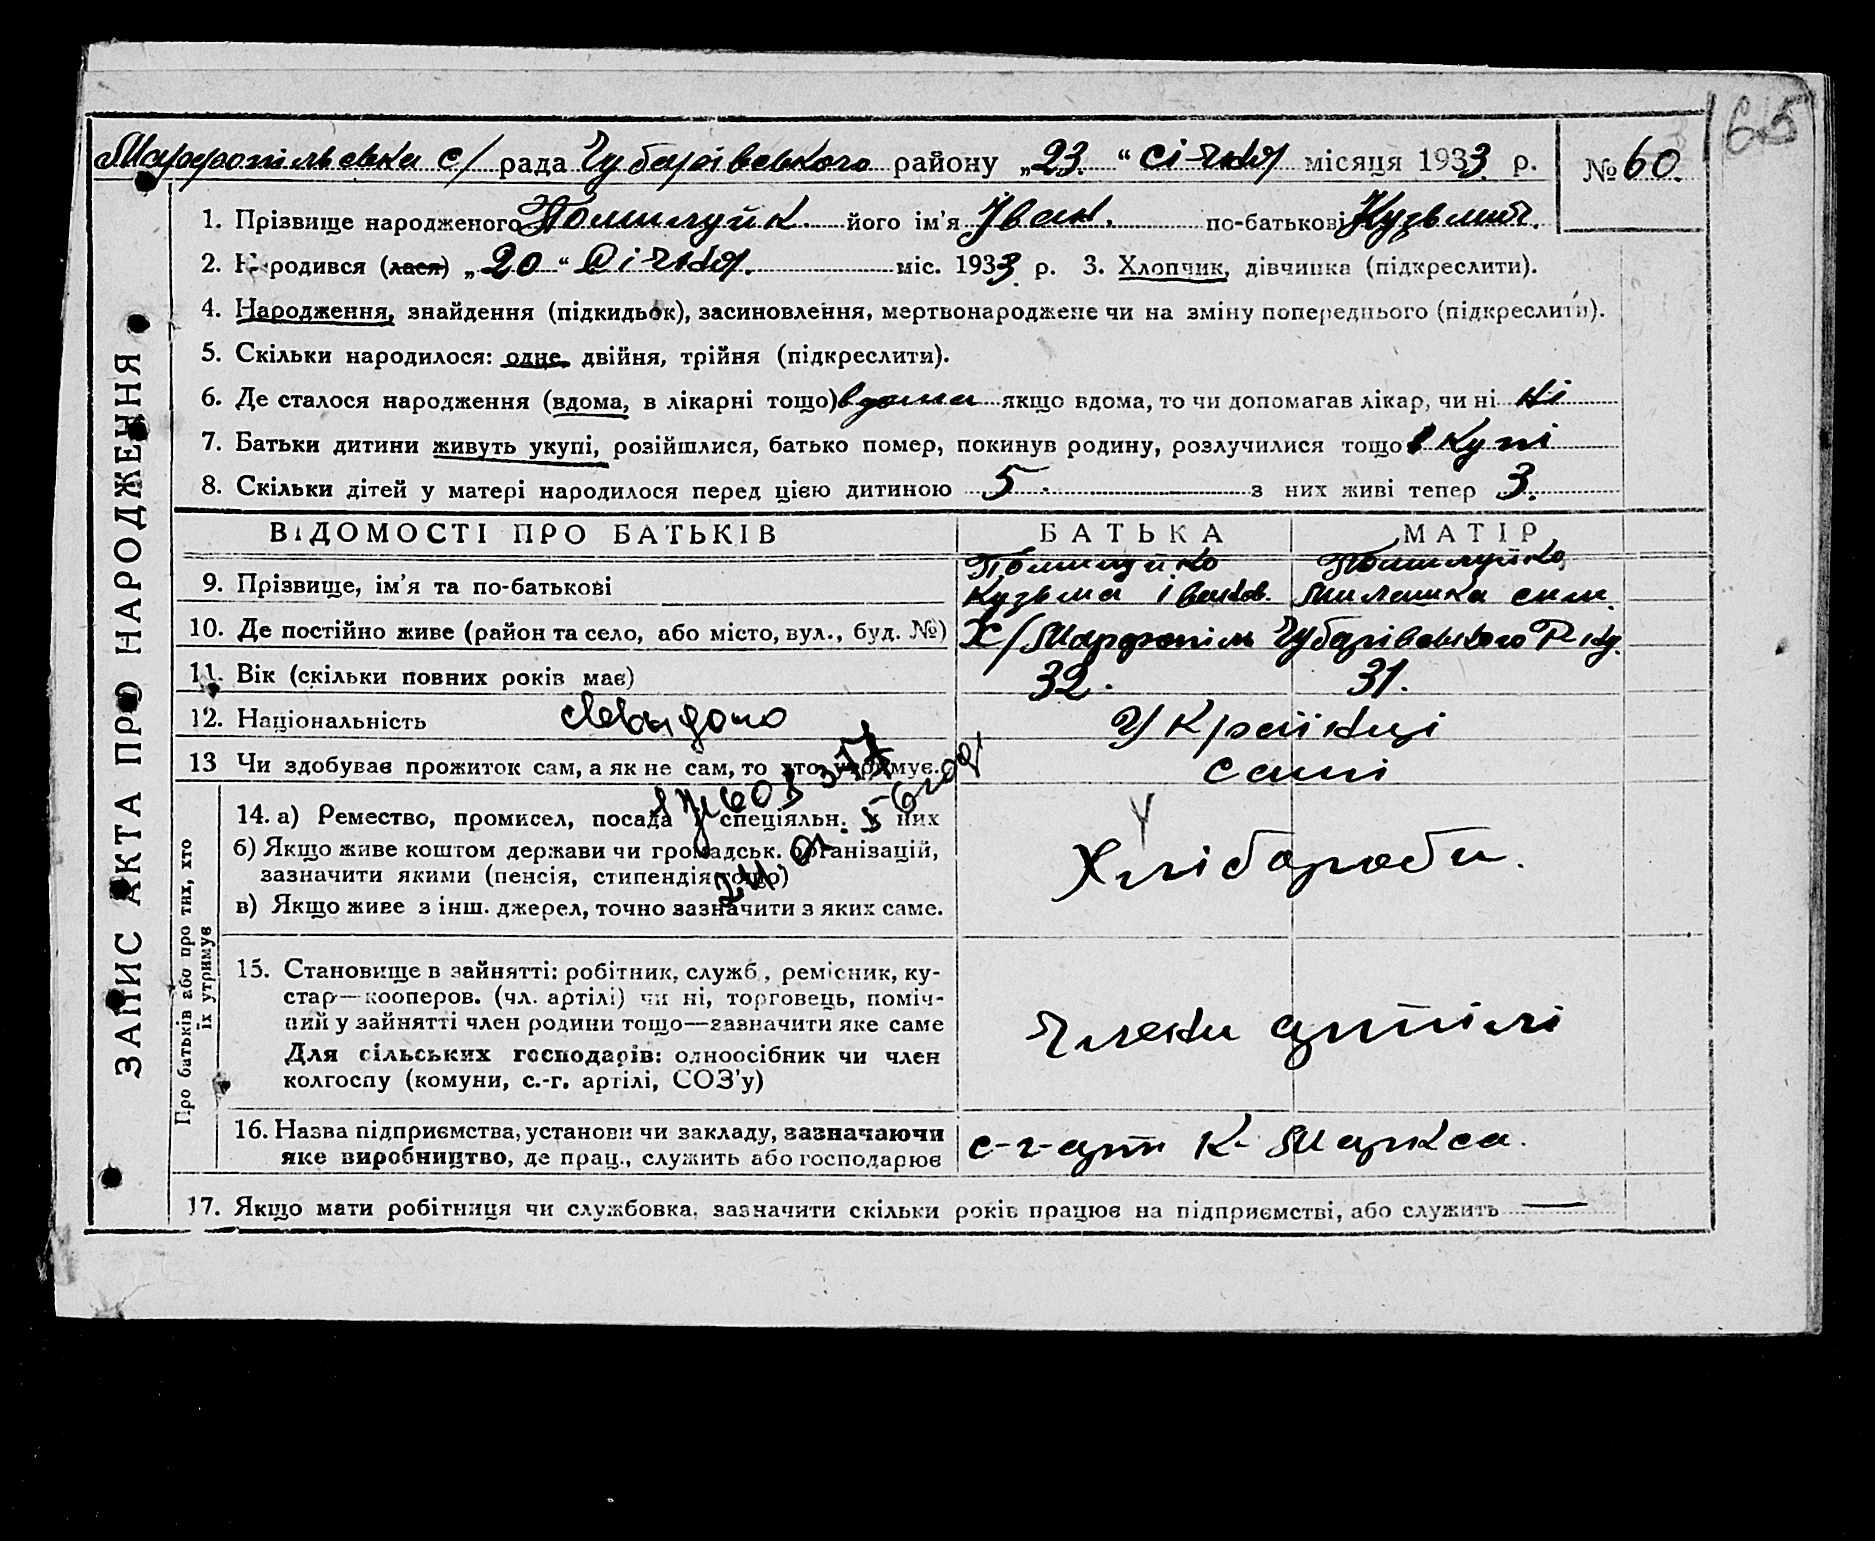 65
Марфопільська с/ рада Чубарівського району „23“ січня місяця 1933 р. № 60.
ЗАПИС АКТА ПРО НАРОДЖЕННЯ
1. Прізвище народженого Помилуйк. його ім'я Іван. по-батькові Кузьмич.
2. Народився (лася) „20“ Січня. міс. 1933 р. 3. Хлопчик, дівчинка (підкреслити).
4. Народження, знайдення (підкидьок), засиновлення, мертвонароджене чи на зміну попереднього (підкреслити).
5. Скільки народилося: одне, двійня, трійня (підкреслити).
6. Де сталося народження (вдома, в лікарні тощо) вдома якщо вдома, то чи допомагав лікар, чи ні ні
7. Батьки дитини живуть укупі, розійшлися, батько помер, покинув родину, розлучилися тощо вкупі
8. Скільки дітей у матері народилося перед цією дитиною 5. з них живі тепер 3.
ВІДОМОСТІ ПРО БАТЬКІВ БАТЬКА МАТІР
Помилуйко Помилуйко
9. Прізвище, ім'я та по-батькові Кузьма Іванов. Милашка сим.
10. Де постійно живе (район та село, або місто, вул., буд. №) Х/Марфопіль Чубарівського Р-ну.
11. Вік (скільки повних років має) 32. 31.
12. Національність Українці
13 Чи здобував прожиток сам, а як не сам, то хто утримує. самі
Про батьків або про тих, хто
їх утримує
14. а) Ремество, промисел, посада й спеціяльн. у них
б) Якщо живе коштом держави чи громадськ. організацій,
зазначити якими (пенсія, стипендія тощо)
в) Якщо живе з інш. джерел, точно зазначити з яких саме.
Хлібороби.
15. Становище в зайнятті: робітник, служб., ремісник, ку-
стар—кооперов. (чл. артілі) чи ні, торговець, поміч-
ний у зайнятті член родини тощо—зазначити яке саме
Для сільських господарів: одноосібник чи член
колгоспу (комуни, с.-г. артілі, СОЗ'у)
Члени артілі
16. Назва підприємства, установи чи закладу, зазначаючи
яке виробництво, де прац., служить або господарює
с-г-арт К-Маркса.
17. Якщо мати робітниця чи службовка, зазначити скільки років працює на підприємстві, або служить —